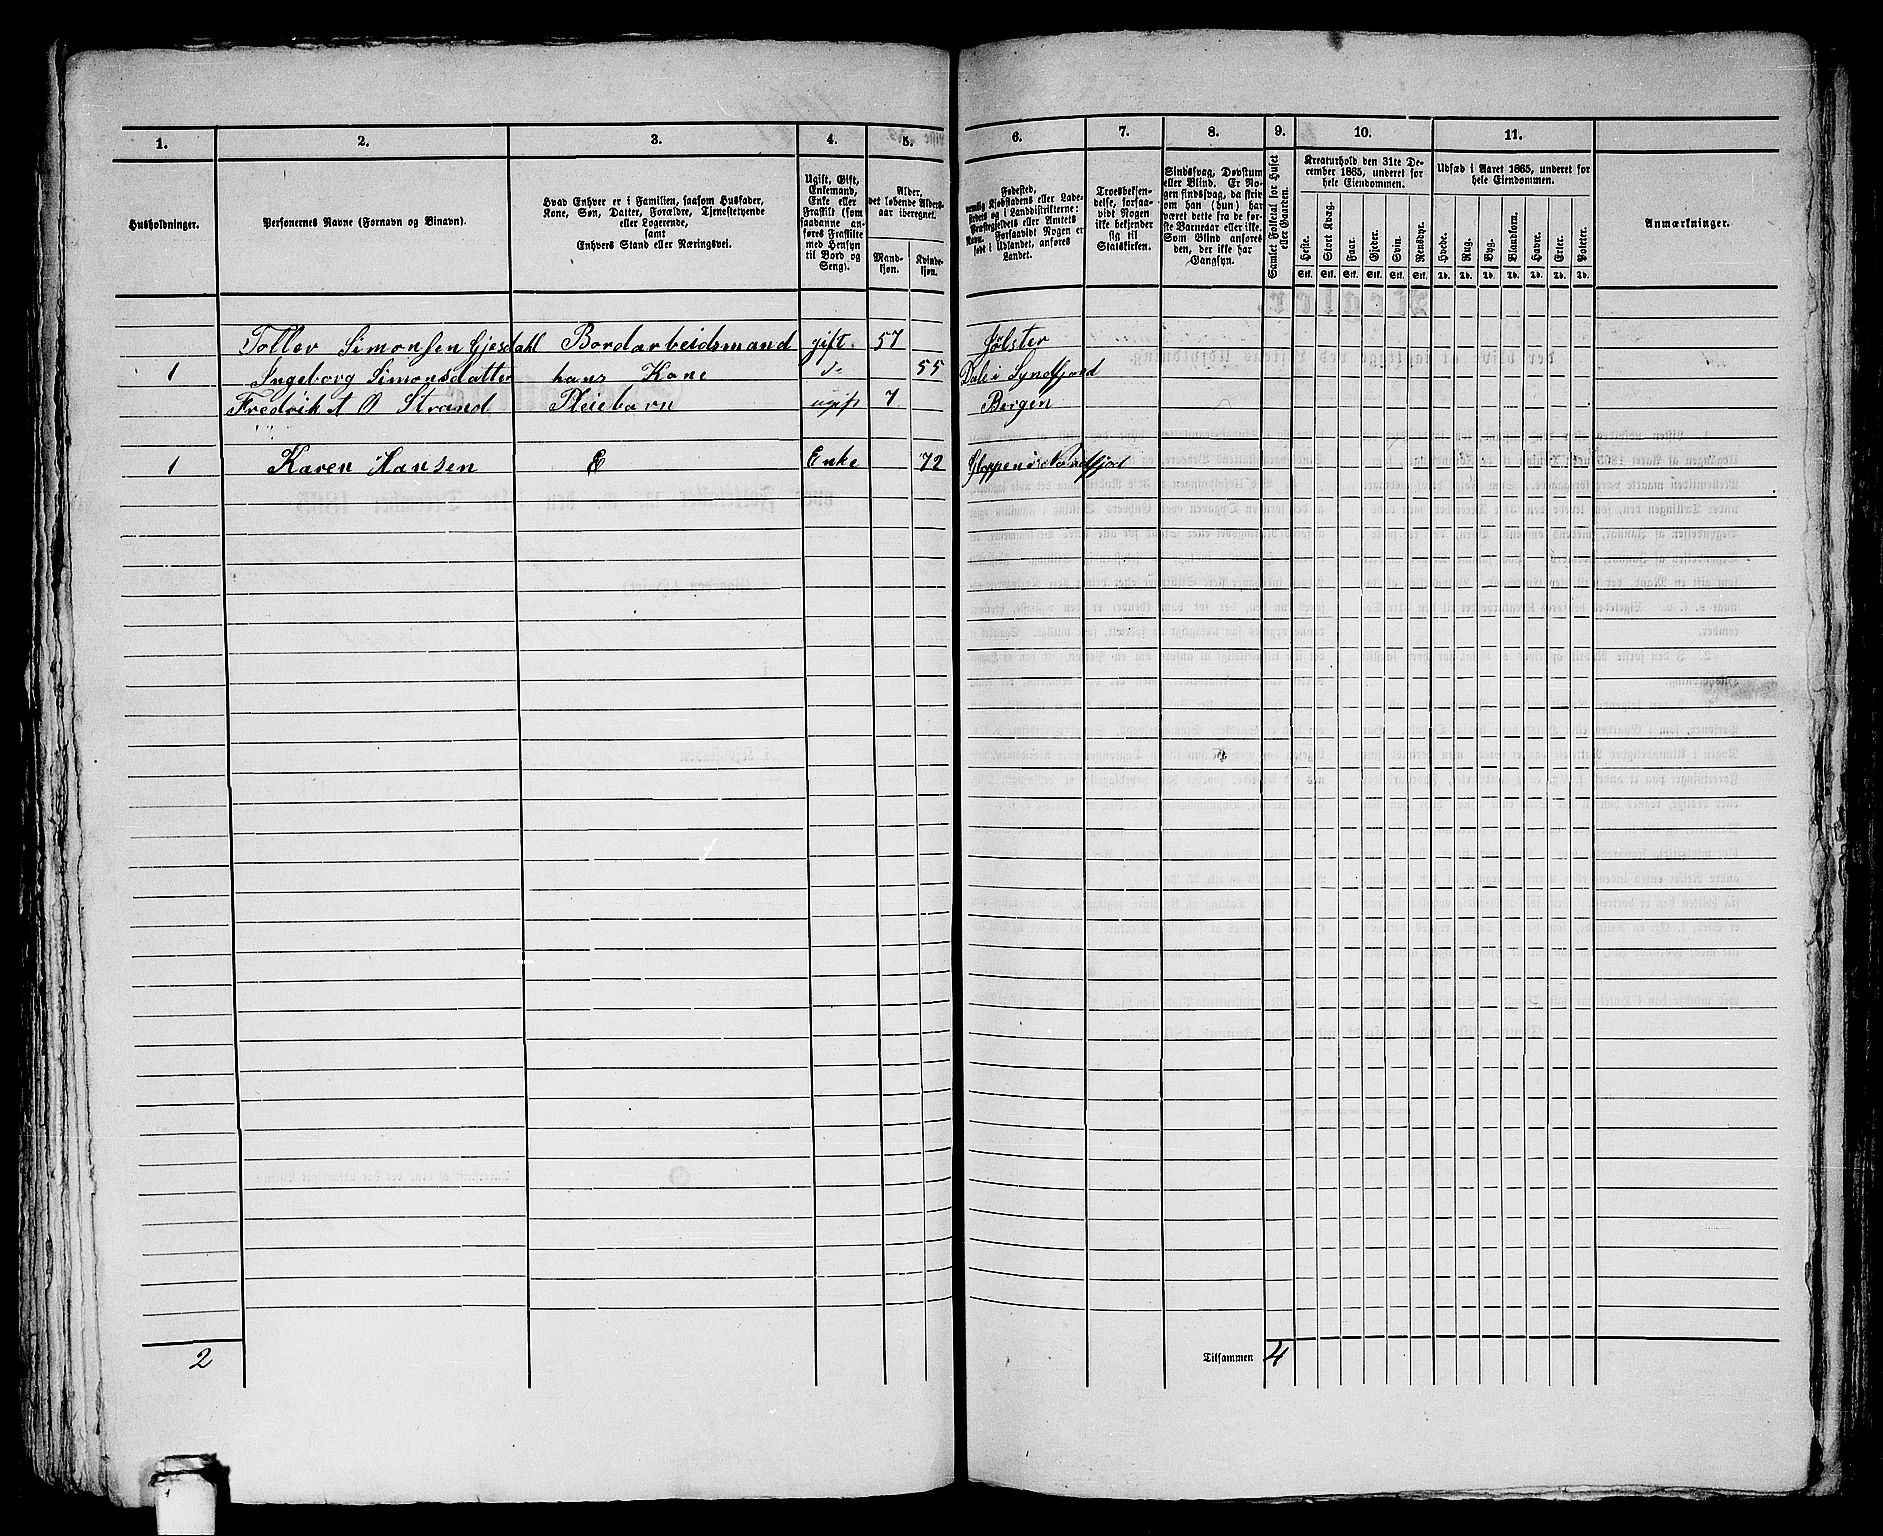 1. 2. 3. 4. 5. 6. 7. 8. 9. 10. 11.
Husholdninger.
Personernes Navne (Fornavn og Binavn).
Hvad Enhver er i Familien, saasom Husfader,
Kone, Søn, Datter, Forældre, Tjenestetyende
eller Logerende,
samt
Enhvers Stand eller Næringsvei.
Ugift, Gift,
Enkemand,
Enke eller
Fraskilt (som
saadanne anføres Fraskilte
med Hensyn
til Bord og
Seng).
Alder,
det løbende Aldersaar iberegnet.
Mandkjøn.
Kvindekjøn.
Fødested,
nemlig Kjøbstadens eller Ladestedets og i Landdistrikterne:
Præstegjeldets eller Amtets
Navn. Forsaavidt Nogen er
født i Udlandet, anføres
Landet.
Troesbekjendelse, forsaavidt Nogen
ikke bekjender
sig til
Statskirken.
Sindssvag, Døvstum
eller Blind. Er Nogen sindssvag, da skrives
om han (hun) har
været dette fra de første Barneaar eller ikke.
Som Blind anføres
den, der ikke har
Gangsyn.
Samlet Folketal for Huset
eller Gaarden.
Kreaturhold den 31te December 1865, underet for
hele Eiendommen.
Heste. Stort Kvæg. Faar. Gjeder. Svin. Rensdyr.
Stk. Stk. Stk. Stk. Stk. Stk.
Udsæd i Aaret 1865, underet for
hele Eiendommen.
Hvede. Rug. Byg. Blandkorn. Havre. Erter. Poteter.
Td. Td. Td. Td. Td. Td. Td.
Anmærkninger.
Toller Simonsen Gjesdahl Bordarbeidsmand gift 57 Jölster
1 Ingeborg Simonsdatter hans Kone 55 Dale i Syndfjord
Fredrik A Ø Strand Pleiebarn ugift 7 Bergen
1 Karen Hansen E Enke 72 Gloppen i Nordfjord
2
Tilsammen 4